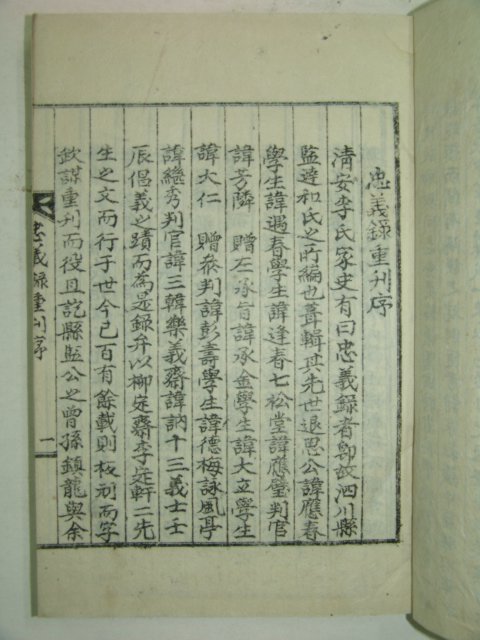 忠義錄重刊序
清安李氏家史有曰忠義錄者即故泗川縣
監達和氏之所編也葺輯其先世退思公諱應春
學生諱遇春學生諱逢春七松堂諱應璧判官
諱芳隣 贈左承旨諱承金學生諱大立學生
諱大仁 贈參判諱彭壽學生諱德梅詠風亭
諱繼秀判官諱三韓樂義齋諱訥十三義士壬
辰倡義之蹟而為是錄弁以柳定齋李定軒二先
生之文而行于世今已百有餘載則板刓而字
欽謀重刊而役且訖縣監公之曾孫鎮龍與余
忠義錄重刊序
一